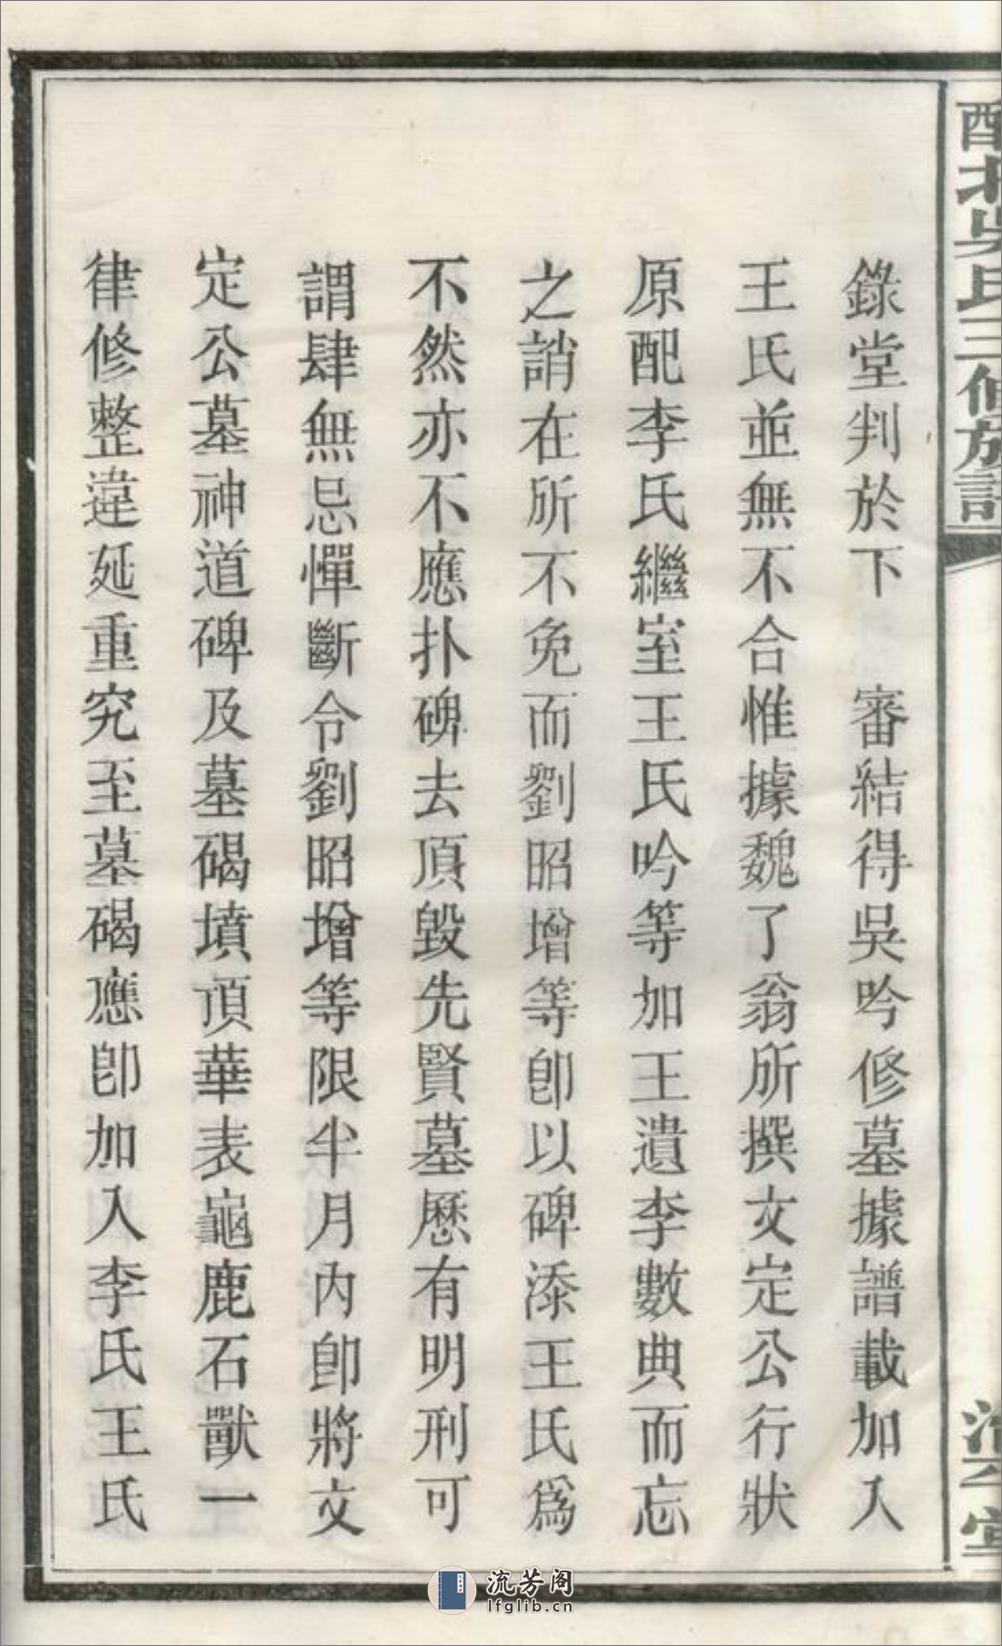 錄堂判於下　審結得吳吟修墓據譜載加入
王氏並無不合惟據魏了翁所撰文定公行狀
原配李氏繼室王氏吟等加王遺李數典而忘
之誚在所不免而劉昭增等卽以碑添王氏爲
不然亦不應扑碑去頂毀先賢墓歷有明刑可
謂肆無忌憚斷令劉昭增等限半月內卽將文
定公墓神道碑及墓碣墳頂華表龜鹿石獸一
律修整違延重究至墓碣應卽加入李氏王氏
北吳氏三修族譜
堂
流芳阁
lfglib.cn